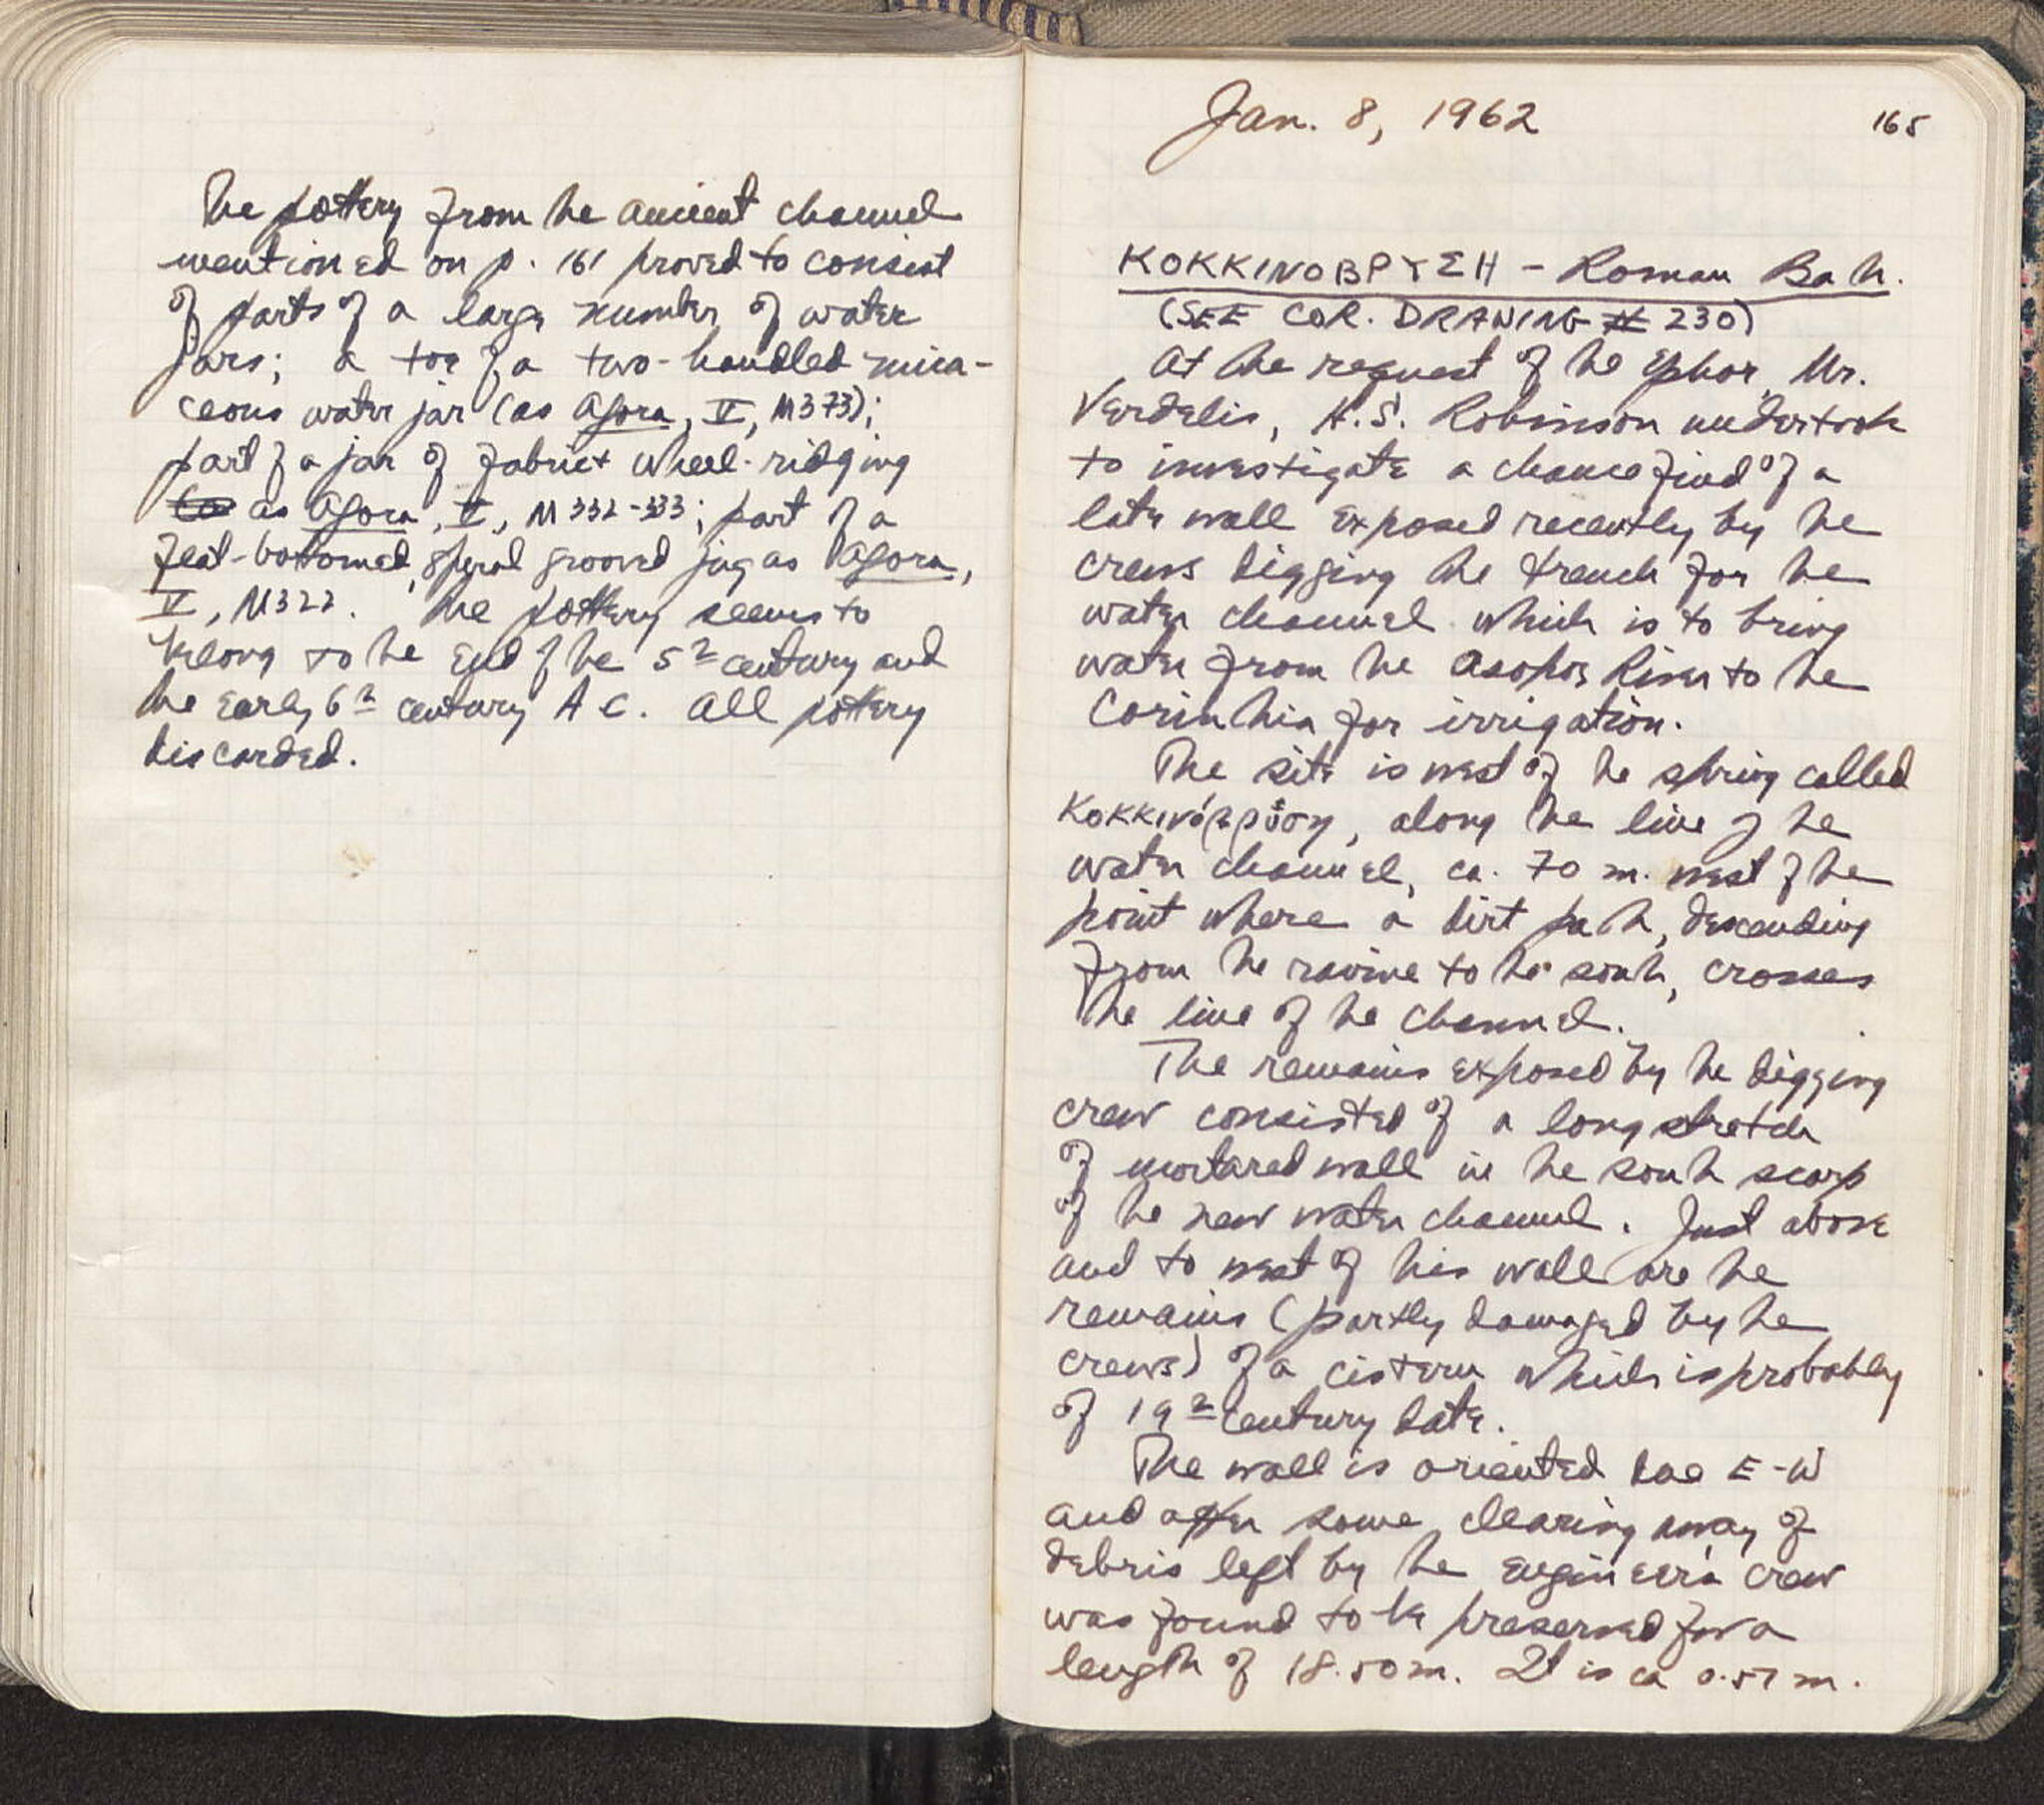 The pottery from the ancient channel
mentioned on p. 161 proved to consist
of parts of a large number of water
jars; a toe of a two-handled mica-
ceous water jar (as Agora, V, M373);
part of a jar of fabric + wheel-ridging
as Agora, V, M332-333; part of a
flat-bottomed, spiral grooved jug as Agora,
V, M322. The pottery seems to
belong to the end of the 5th century and
the early 6th century A C. All pottery
discarded.
Jan. 8, 1962
165
ΚΟΚΚΙΝΟΒΡΥΣΗ - Roman Bath.
(SEE COR. DRAWING # 230)
At the request of the Ephor, Mr.
Verdelis, H.S. Robinson undertook
to investigate a chance find of a
late wall exposed recently by the
crews digging the trench for the
water channel which is to bring
water from the Asopos River to the
Corinthia for irrigation.
The site is west of the spring called
Κοκκινόβρυση, along the line of the
water channel, ca. 70 m. west of the
point where a dirt path, descending
from the ravine to the south, crosses
the line of the channel.
The remains exposed by the digging
crew consisted of a long stretch
of mortared wall in the south scarp
of the new water channel. Just above
and to west of this wall are the
remains (partly damaged by the
crews) of a cistern which is probably
of 19th century date.
The wall is oriented due E-W
and after some clearing away of
debris left by the engineer's crew
was found to be preserved for a
length of 18.50 m. It is ca 0.57 m.